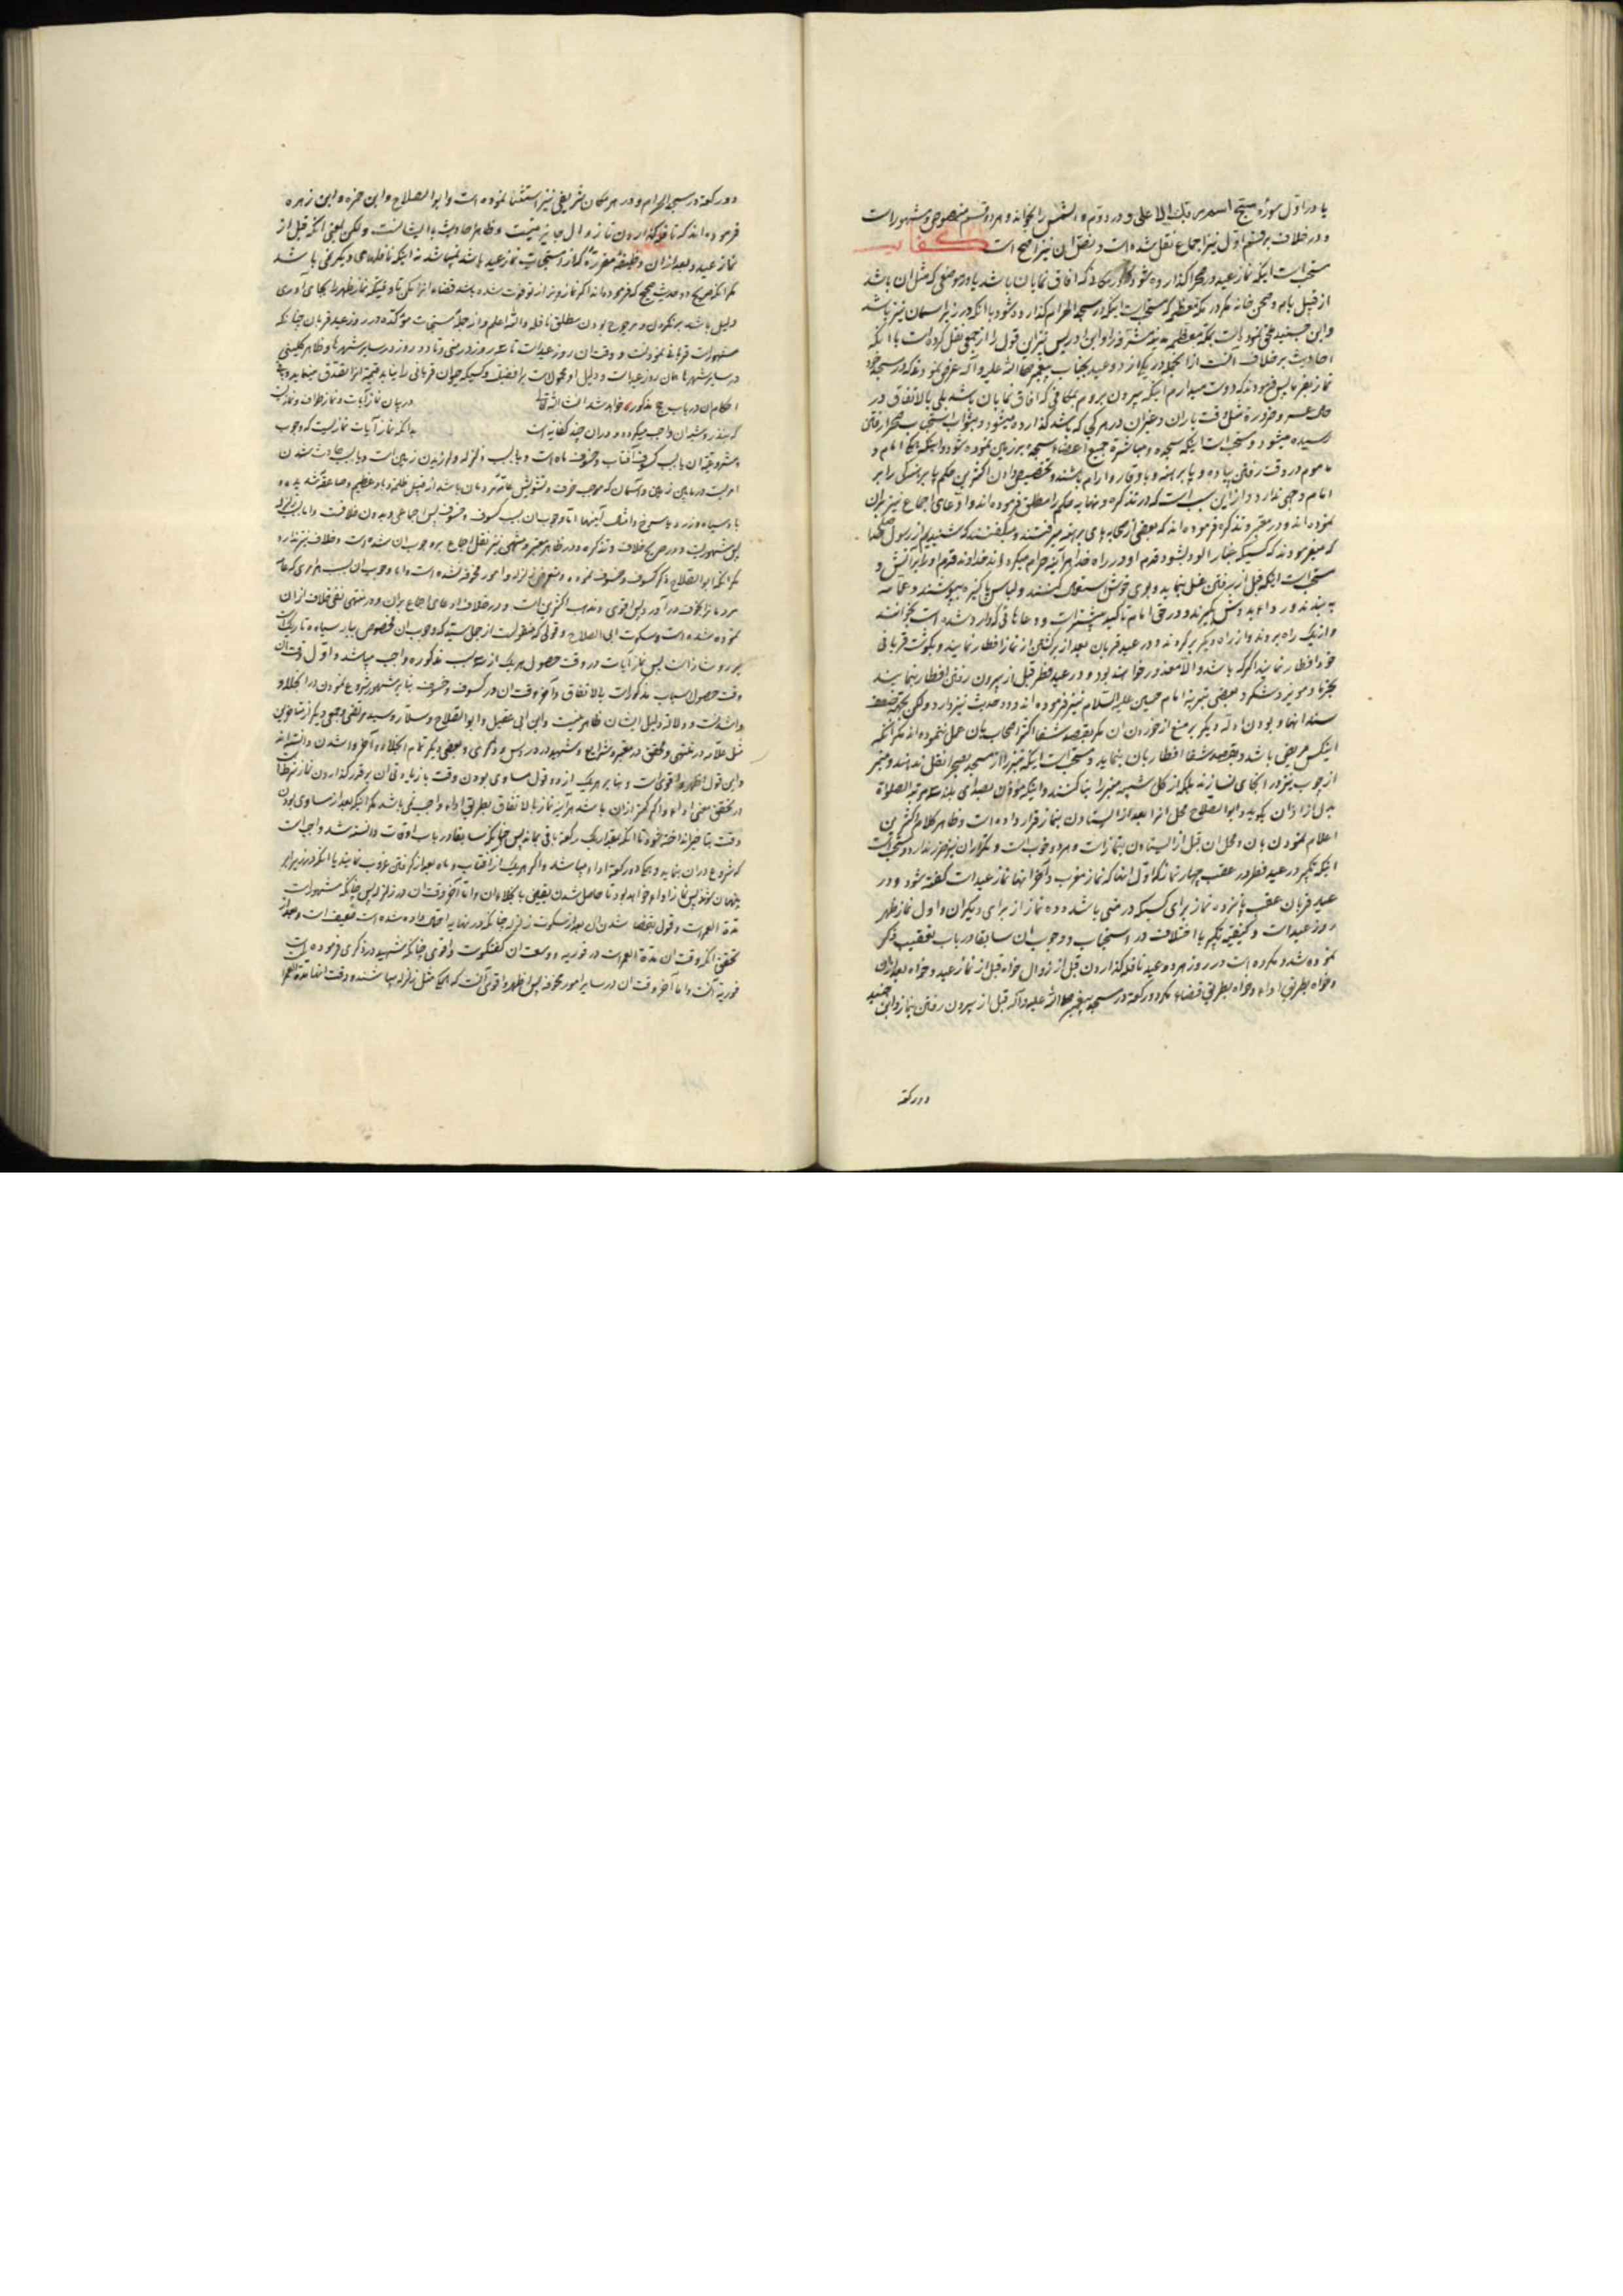 یا در اول سورهٔ سبح اسم ربک الاعلی و در دوم والشمس را بخواند و هر دو قسم منصوص و مشهور است
و در خلاف بر قسم اول نیز اجماع نقل شده است و نقل آن نیز واضح است کفایـه
مستحب است اینکه نماز عید در صحرا گذارده شود که آفاق نمایان باشد یا در موضعی که مثل آن باشد
از قبیل بام و صحن خانه مگر در مکه معظمه که مستحب است اینکه در مسجد الحرام گذارده شود با آنکه در زیر آسمان نیز باشد
و ابن جنید ملحق نموده است بمکه معظمه مدینه مشرفه را و ابن ادریس نیز این قول را از جمعی نقل کرده است با آنکه
احادیث بر خلاف آنست از آنجمله در یکی از دو عید بجناب پیغمبر صلی الله علیه و آله عرض نمودند که در مسجد خود
نماز بفرما پس فرمودند که دوست میدارم اینکه بیرون بروم بمکانی که آفاق نمایان باشد بلی بالاتفاق در
حال عسر و ضرورة مثل آفت باران و غیر آن در هر مکانی که باشد گذارده میشود و بثواب استحباب صحرا رفتن
رسیده میشود و مستحب است اینکه سجده و مباشرة جمیع اعضاء سجده بر زمین نموده شود و اینکه امام و
ماموم در وقت رفتن پیاده و پا برهنه و با وقار و آرام باشند و تخصیص دادن اکثرین حکم پا برهنگی را بر
امام وجهی ندارد و از این سبب است که در تذکره و نهایه حکم را مطلق فرموده‌اند و ادعای اجماع نیز بر آن
نموده‌اند و در معتبر و تذکره فرموده‌اند که بعضی از صحابه پای برهنه میرفتند و میگفتند که شنیدیم از رسول خدا
که میفرمودند که کسیکه غبار آلود بشود قدم او در راه خدا هر آینه حرام میگرداند خداوند قدم او را بر آتش و
مستحب است اینکه قبل از رفتن غسل نماید و بوی خوش استعمال کنند و لباس پاکیزه بپوشند و عمامه
به بندند و ردا بدوش گیرند و در حق امام تاکید بیشتر است و دعاهائی که وارد شده است بخوانند
و از یک راه بروند و از راه دیگر برگردند و در عید قربان بعد از برگشتن از نماز افطار نمایند و بگوشت قربانی
خود افطار نمایند اگر که باشد و الا معذور خواهند بود و در عید فطر قبل از بیرون رفتن افطار بنمایند
بخرما و مویز و شکر و بعضی بتربة امام حسین علیه السلام نیز فرموده‌اند و دو حدیث نیز دارد ولکن بجهة ضعف
سند آنها و بودن ادله دیگر بر منع از خوردن آن مگر بقصد شفا اکثر اصحاب بآن عمل ننموده‌اند مگر آنکه
اینکس مریض باشد و بقصد شفا افطار بآن بنماید و مستحب است اینکه منبر را از مسجد بصحرا نقل ندهند و منبر
از چوب نیز در آنجا نسازند بلکه از گل شبیه منبر را بنا کنند و اینکه مؤذن بصدای بلند سه مرتبه الصلوة
بدل از اذان بگوید و ابو الصلاح محل آنرا بعد از ایستادن بنماز قرار داده است و ظاهر کلام اکثرین
اعلام نمودن بآن و محل آن قبل از ایستادن بنماز است و هر دو خوب است و تکرار آن نیز ضرر ندارد و مستحب است
اینکه تکبیر در عید فطر در عقب چهار نماز که اول آنها که نماز مغرب و آخر آنها نماز عید است گفته شود و در
عید قربان عقب پانزده نماز برای کسیکه در منی باشد و ده نماز از برای دیگران و اول نماز ظهر
روز عید است و کیفیة تکبیر با اختلاف در استحباب و وجوب آن سابقا در باب تعقیب ذکر
نموده شد و مکروه است در روز هر دو عید نافله گذاردن قبل از زوال خواه قبل از نماز عید و خواه بعد از آن
و خواه بطریق اداء و خواه بطریق قضاء مگر دو رکعة در مسجد پیغمبر صلی الله علیه و آله قبل از بیرون رفتن بنماز و ابن جنید
دو رکعة
دو رکعة در مسجد الحرام و در هر مکان شریفی نیز استثنا نموده است و ابو الصلاح و ابن حمزه و ابن زهره
فرموده‌اند که تا زوال جایز نیست و ظاهر احادیث با ایشانست ولکن یعنی آنکه قبل از
نماز عید و بعد از آن وظیفهٔ مقررهٔ که از مستحبات نماز عید باشد نمیباشد نه اینکه نافلهای دیگر نمی باشد
دلیل باشد بر مکروه و مرجوح بودن مطلق نافله و الله اعلم و از جملهٔ سنن مؤکده در روز عید قربان چنانکه
مشهور است قربانی نمودنست و وقت آن روز عید است تا سه روز در منی و تا دو روز در سایر شهرها و ظاهر کلینی
احکام آن در باب حج مذکور خواهد شد انشاء الله تعالی در بیان نماز آیات و نماز طواف و نماز
که بنذر و شبه آن واجب میگردد و در آن چند کفایه است بدانکه نماز آیات نمازیست که وجوب
و مشروعیة آن یا بسبب کسوف آفتاب و خسوف ماه است و یا بسبب زلزله و لرزیدن زمین است و یا بسبب حادث شدن
امریست در مابین زمین و آسمان که موجب خوف و تشویش عامه مردمان باشد از قبیل ظلمة و باد عظیم و صاعقه شدیده
یا باد سیاه و زرد یا سرخ و امثال اینها اما وجوب آن بسبب کسوف و خسوف پس اجماعی و بدون خلافست و اما بسبب زلزله
پس مشهور است و در صریح خلاف و تذکره و در ظاهر معتبر و منتهی نیز نقل اجماع بر وجوب آن شده است و خلافی نیز ندارد
مگر آنکه ابو الصلاح ذکر کسوف و خسوف نموده و متعرض زلزله و امور مخوفه نشده است و اما وجوب آن بسبب هر امری که عامه
مردمانرا بخوف در آورد پس اقوی و مذهب اکثرین است و در خلاف ادعای اجماع بر آن و در منتهی نفی خلاف از آن
نموده شده است و سکوت ابی الصلاح و قولی که منقول است از جمل سید که وجوب آن مخصوص بباد سیاه و تاریک است
هر دو شاذ است پس نماز آیات در وقت حصول هر یک از سه سبب مذکوره واجب میباشد و اول وقت آن
وقت حصول اسباب مذکور است بالاتفاق و آخر وقت آن در کسوف و خسوف بنا بر مشهور شروع نمودن در انجلا و
واشدنست و دلالة دلیل ایشان ظاهر نیست و ابن ابی عقیل و ابو الصلاح و سلار و سید مرتضی و جمعی دیگر از متاخرین
مثل علامه در منتهی و محقق در معتبر و شرایع و شهید در دروس و ذکری و بعضی دیگر تمام انجلاء را آخر وا شدن دانسته‌اند
و این قول اظهر و اقوی است و بنا بر هر یک از دو قول مساوی بودن وقت یا زیادتی آن بر قدر گذاردن نماز شرط است
وقت بتاخیر انداخته شود تا آنکه بقدر یک رکعة باقی بماند پس چنانکه سابقا در باب اوقات دانسته شد واجب است
که شروع در آن بنماید و بهمان رکعة اداء میباشد و اگر هر یک از آفتاب و ماه بعد از گرفتن غروب نمایند یا آنکه در زیر ابر
پنهان شوند پس نماز اداء خواهد بود تا حاصل شدن یقین بانجلاء آن و اما آخر وقت آن در زلزله پس چنانکه مشهور است
مدة العمر است و قول بقضا شدن آن بعد از سکوت زلزله چنانکه در نهایه احتمال داده شده است ضعیف است و بعد از
تحقق آنکه وقت آن مدة العمر است در فوریه و وسعت آن گفتگوست و اقوی چنانکه شهید در ذکری فرموده است
فوریة آنست و اما آخر وقت آن در سایر امور مخوفه پس اظهر و اقوی آنست که آنها مثل زلزله میباشند و وقت آنها مدة العمر